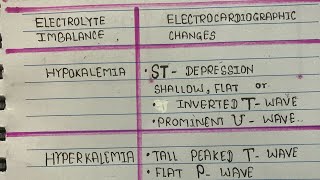 ELECTROLYTE IMBALANCE
ELECTROCARDIOGRAPHIC CHANGES
HYPOKALEMIA
• ST - DEPRESSION
SHALLOW, FLAT or
• INVERTED T - WAVE
• PROMINENT U - WAVE..
HYPERKALEMIA
• TALL PEAKED T - WAVE
• FLAT P - WAVE